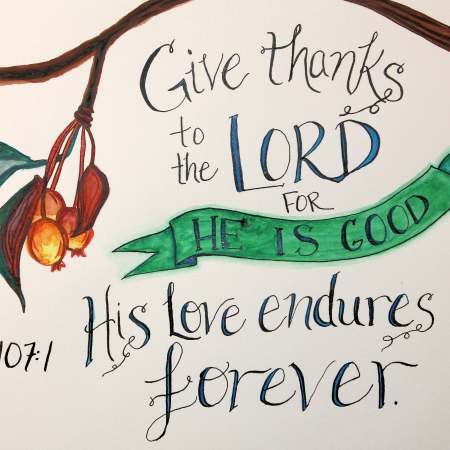 Give thanks
to
the LORD
FOR
HE IS GOOD
His Love endures
forever.
107:1